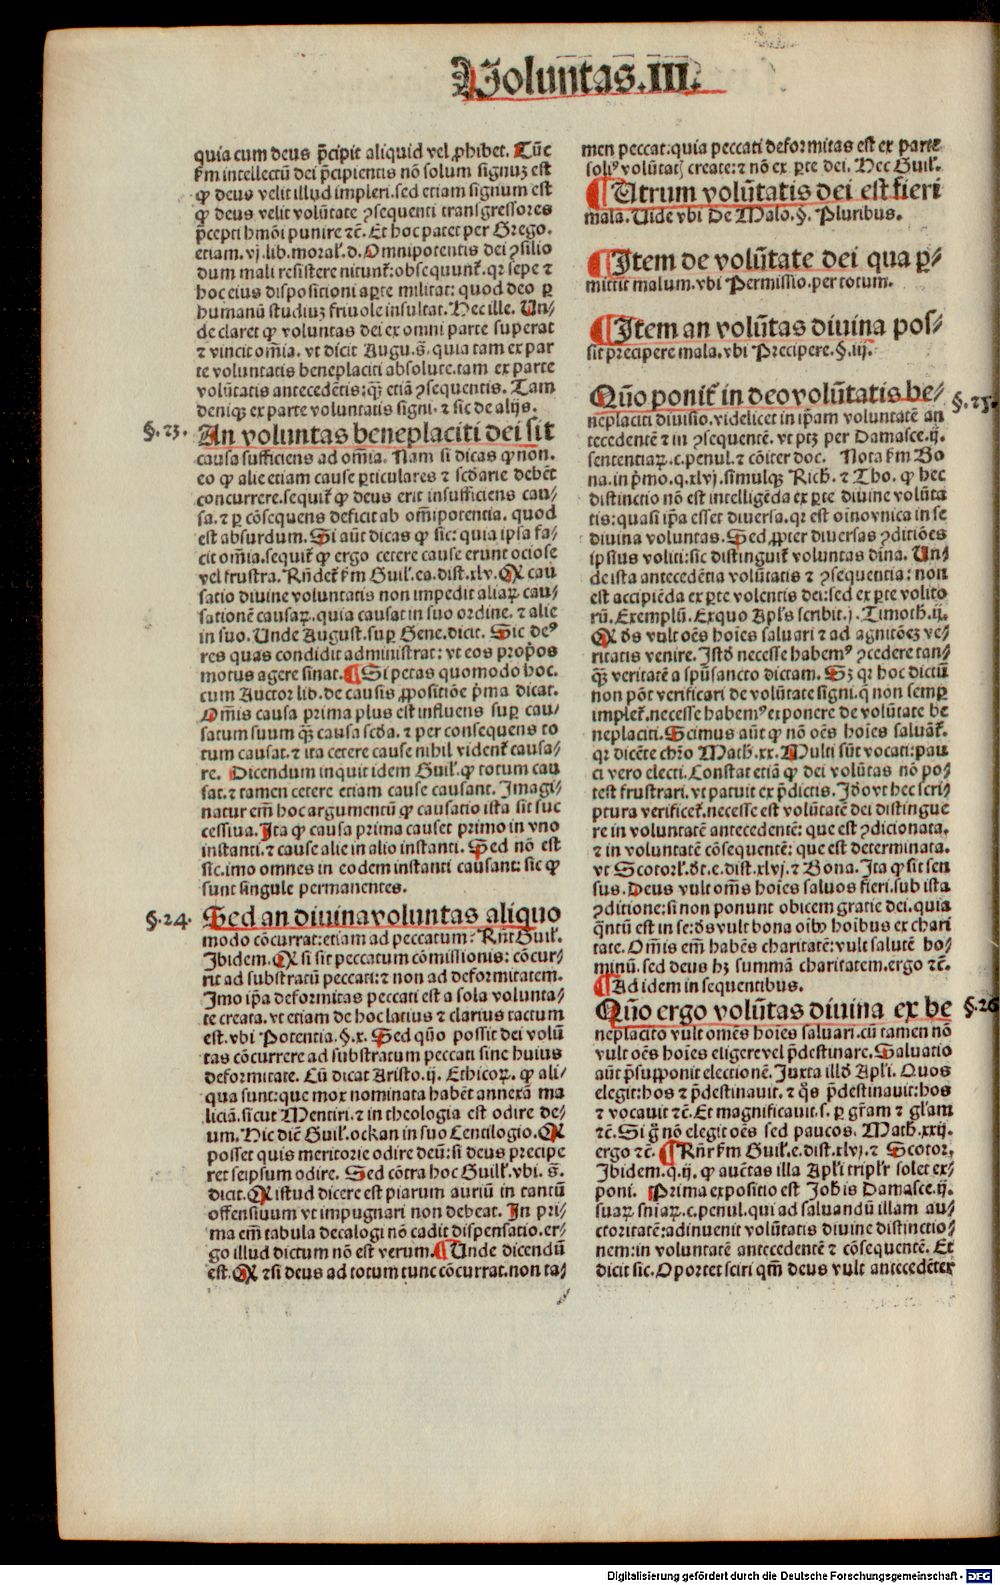 Voluñtas.III.
quia cum deus p̄cipit aliquid vel ꝓhibet. Tūc
ẜm intellectū dei p̄cipientis nō solum signuꝫ est
ꝙ deus velit illud impleri.sed etiam signum est
ꝙ deus velit volūtate ꝯsequenti transgressores
p̄cepti hmōi punire ⁊c̄. Et hoc patet per Grego.
etiam.vj.lib.moral̓.d. Omnipotentis dei ꝯsilio
dum mali resistere nitunt̓:obsequunt̓.qꝛ sepe ⁊
hoc eius dispositioni aꝑte militat: quod deo ꝑ
humanū studiuꝫ friuole insultat. Hec ille. Un⸗
de claret ꝙ voluntas dei ex omni parte superat
⁊ vincit om̄ia. vt dicit Augu.s̄. quia tam ex par
te voluntatis beneplaciti absolute.tam ex parte
volūtatis antecedētis:qꝫ̄ etiā ꝯsequentis. Tam
deniqꝫ ex parte voluntatis signi.⁊ sic de alijs.
§.23. An voluntas beneplaciti dei sit
causa sufficiens ad om̄ia. Nam si dicas ꝙ non.
eo ꝙ alie etiam cause ꝑticulares ⁊ scd̄arie debēt
concurrere.sequit̓ ꝙ deus erit insufficiens cau⸗
sa.⁊ ꝑ cōsequens deficit ab om̄ipotentia. quod
est absurdum. Si aūt dicas ꝙ sic: quia ipsa fa⸗
cit om̄ia.sequit̓ ꝙ ergo cetere cause erunt ociose
vel frustra. Rn̄det̓ ẜm Guil̓.ea.dist.xlv. Q cau
satio diuine voluntatis non impedit aliaꝝ cau⸗
sationē causaꝝ. quia causat in suo ordine. ⁊ alie
in suo. Unde August.suꝑ Gene.dicit. Sic deꝰ
res quas condidit administrat: vt eos prop̓os
motus agere sinat. ¶ Si petas quomodo hoc.
cum Auctor lib.de causis ꝓpositiōe p̄ma dicat.
Om̄is causa prima plus est influens suꝑ cau⸗
satum suum qꝫ̄ causa scd̄a. ⁊ per consequens to
tum causat.⁊ ita cetere cause nihil vident̓ causa⸗
re. Dicendum inquit idem Guil̓.ꝙ totum cau
sat.⁊ tamen cetere etiam cause causant. Imagi⸗
natur em̄ hoc argumentū ꝙ causatio ista sit suc
cessiua. Ita ꝙ causa prima causet primo in vno
instanti.⁊ cause alie in alio instanti. Sed nō est
sic.imo omnes in eodem instanti causant: sic ꝙ
sunt singule permanentes.
§.24. Sed an diuina voluntas aliquo
modo cōcurrat:etiam ad peccatum? Rn̄t̓ Guil̓.
Ibidem. Q si sit peccatum cōmissionis: cōcur⸗
rit ad substratū peccati: ⁊ non ad deformitatem.
Imo ip̄a deformitas peccati est a sola volunta⸗
te creata. vt etiam de hoc latius ⁊ clarius tactum
est.vbi Potentia.§.x. Sed quō possit dei volū
tas cōcurrere ad substratum peccati sine huius
deformitate. Cū dicat Aristo.ij. Ethicoꝝ. ꝙ ali⸗
qua sunt:que mox nominata habēt annexā ma
liciā.sicut Mentiri.⁊ in theologia est odire de⸗
um. Hic diē Guil̓.ockan in suo Centilogio. Q
posset quis meritorie odire deū: si deus precipe
ret seipsum odire. Sed cōtra hoc Guill̓.vbi. s̄.
dicit. Q istud dicere est piarum auriū in tantū
offensiuum vt impugnari non debeat. In pri⸗
ma em̄ tabula decalogi nō cadit dispensatio.er⸗
go illud dictum nō est verum. ¶ Unde dicendū
est. Q ⁊si deus ad totum tunc cōcurrat.non ta⸗
men peccat:quia peccati deformitas est ex parte
soliꝰ volūtatꝭ create:⁊ nō ex ꝑte dei. Hec Guil̓.
¶ Utrum volūtatis dei est fieri
mala. Uide vbi De Malo.§. Pluribus.
¶ Item de volūtate dei qua ꝑ⸗
mittit malum.vbi Permissio.per totum.
¶ Item an volūtas diuina pos⸗
sit precipere mala.vbi Precipere.§.iij.
Quō ponit̓ in deo volūtatis be⸗ §.25.
neplaciti diuisio.videlicet in ip̄am voluntatē an
tecedentē ⁊ in ꝯsequentē. vt ptꝫ per Damasce.ij.
sententiaꝝ.c.penul.⁊ cōiter doc. Nota ẜm Bo
na.in p̄mo.q.xlvj.simulqꝫ Rich̓. ⁊ Tho. ꝙ hec
distinctio nō est intelligēda ex ꝑte diuine volūta
tis:quasi ip̄a esset diuersa.qꝛ est oīno vnica in se
diuina voluntas. Sed ꝓpter diuersas ꝯditiōes
ipsius voliti:sic distinguit̓ voluntas diīna. Un⸗
de ista antecedētia volūtatis ⁊ ꝯsequentia: non
est accipiēda ex ꝑte volentis dei:sed ex ꝑte volito
rū. Exemplū. Exquo Apl̓s scribit.j. Timoth.ij.
Q d̓s vult oēs hoīes saluari ⁊ ad agnitōeꝫ ve⸗
ritatis venire. Istd̓ necesse habemꝰ ꝯcedere tan⸗
qꝫ̄ veritatē a spūsancto dictam. Sꝫ qꝛ hoc dictū
non pōt verificari de volūtate signi.q̄ non semꝑ
implet̓.necesse habemꝰ exponere de volūtate be
neplaciti. Scimus aūt ꝙ nō oēs hoīes saluāt̓.
qꝛ dicēte chr̄o Math̓.xx. Multi sūt vocati:pau
ci vero electi. Constat etiā ꝙ dei volūtas nō po⸗
test frustrari.vt patuit ex p̄dictis. Id̓o vt hec scri⸗
ptura verificet̓.necesse est volūtatē dei distingue
re in voluntatē antecedentē: que est ꝯdicionata.
⁊ in voluntatē cōsequentē: que est determinata.
vt Scotorl̓.d̓t.e.dist.xlvj.⁊ Bona. Ita ꝙ sit sen
sus. Deus vult om̄s hoīes saluos fieri.sub ista
ꝯditione:si non ponunt obicem gratie dei.quia
q̄ntū est in se:d̓s vult bona oībꝰ hoībus ex chari
tate. Om̄is em̄ habēs charitatē:vult salutē ho⸗
minū.sed deus hꝫ summā charitatem.ergo ⁊c̄.
¶ Ad idem in sequentibus.
Quō ergo volūtas diuina ex be §.26
neplacito vult omēs hoīes saluari.cū tamen nō
vult oēs hoīes eligere vel p̄destinare. Saluatio
aūt p̄supponit electionē. Juxta illd̓ Apl̓i. Quos
elegit:hos ⁊ p̄destinauit.⁊ q̄s p̄destinauit:hos
⁊ vocauit ⁊c̄. Et magnificauit.s. ꝑ gr̄am ⁊ gl̓am
⁊c̄. Si g̊ nō elegit oēs sed paucos. Math̓.xxij.
ergo ⁊c̄. ¶ Rn̄t̓ ẜm Guil̓.e.dist.xlvj.⁊ Scotor.
Ibidem.q.ij. ꝙ auctas illa Apl̓i tripl̓r solet ex⸗
poni. Prima expositio est Joh̓is Damasce.ij.
suaꝝ sn̄iaꝝ.c.penul.qui ad saluandū illam au⸗
ctoritatē:adinuenit volūtatis diuine distinctio⸗
nem:in voluntatē antecedentē ⁊ cōsequentē. Et
dicit sic. Oportet sciri qm̄ deus vult antecedēter
Digitalisierung gefördert durch die Deutsche Forschungsgemeinschaft - DFG